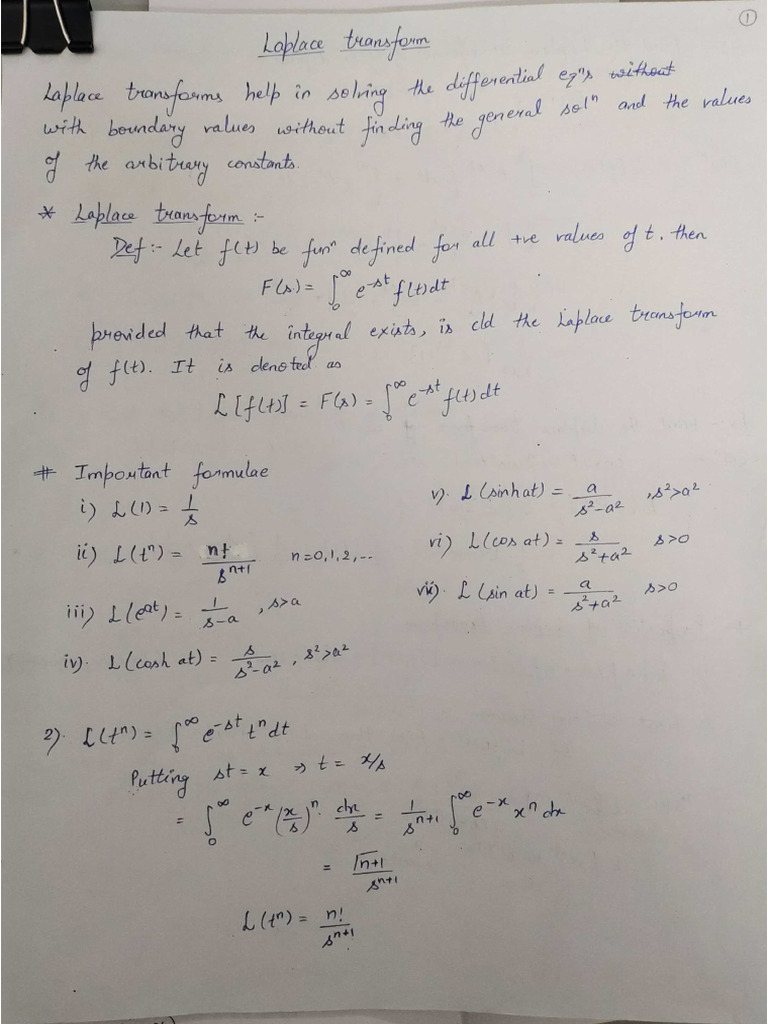 ①
Laplace transform
Laplace transforms help in solving the differential eqⁿs without
with boundary values without finding the general solⁿ and the values
of the arbitrary constants.
* Laplace transform :-
Def :- Let f(t) be funⁿ defined for all +ve values of t. then
F(s) = ∫₀^∞ e^{-st} f(t) dt
provided that the integral exists, is cld the Laplace transform
of f(t). It is denoted as
L [f(t)] = F(s) = ∫₀^∞ e^{-st} f(t) dt
# Important formulae
i) L(1) = 1/s
ii) L(tⁿ) = n!/s^{n+1} n=0,1,2,..
iii) L(e^{at}) = 1/(s-a) , s>a
iv). L(cosh at) = s/(s²-a²) , s²>a²
v). L (sinhat) = a/(s²-a²) , s²>a²
vi) L(cos at) = s/(s²+a²) s>0
vii). L (sin at) = a/(s²+a²) s>0
2). L(tⁿ) = ∫₀^∞ e^{-st} tⁿ dt
Putting st = x ⇒ t = x/s
= ∫₀^∞ e^{-x} (x/s)ⁿ . dx/s = 1/s^{n+1} ∫₀^∞ e^{-x} xⁿ dx
= Γ(n+1)/s^{n+1}
L (tⁿ) = n!/s^{n+1}